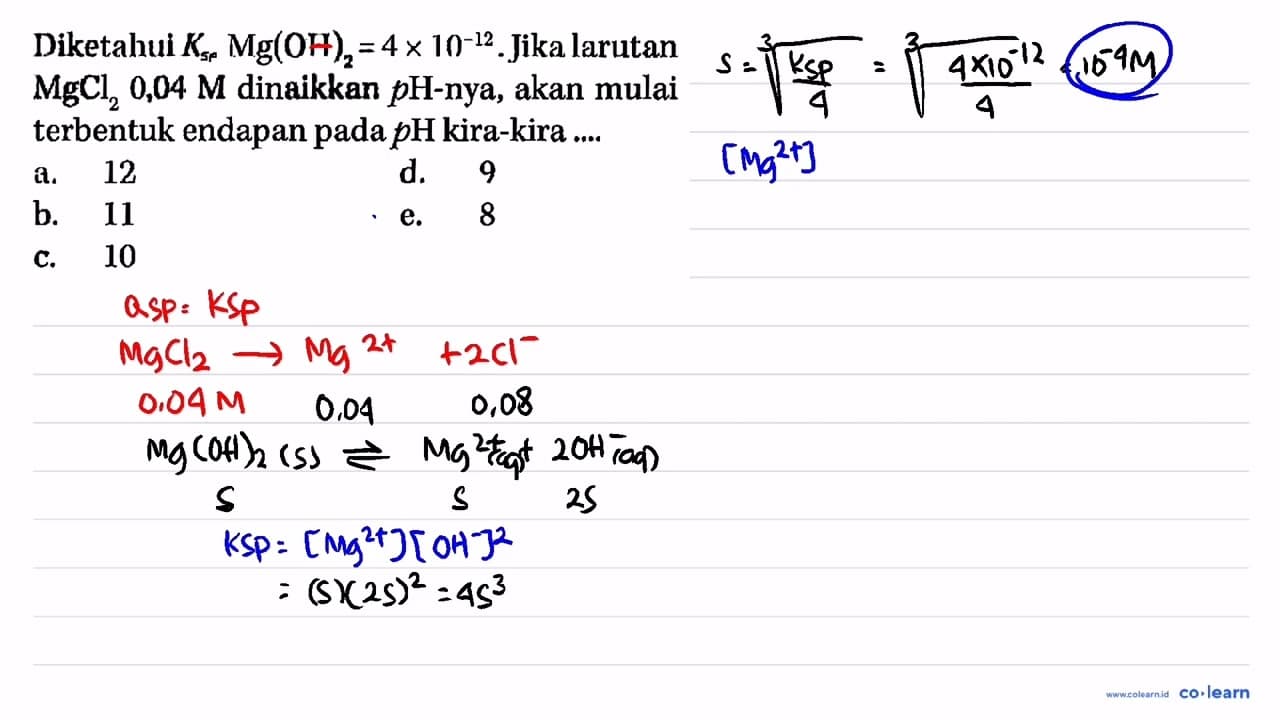 Diketahui Ksp Mg(OH)₂ = 4 × 10⁻¹². Jika larutan
MgCl₂ 0,04 M dinaikkan pH-nya, akan mulai
terbentuk endapan pada pH kira-kira ....
a. 12
b. 11
c. 10
d. 9
e. 8
Qsp = Ksp
MgCl₂ → Mg²⁺ + 2Cl⁻
0.04 M 0,04 0,08
Mg(OH)₂ (s) ⇌ Mg²⁺(aq) + 2OH⁻(aq)
S S 2S
Ksp = [Mg²⁺][OH⁻]²
= (S)(2S)² = 4S³
S = ∛(Ksp/4) = ∛(4×10⁻¹²/4) = 10⁻⁴ M
[Mg²⁺]
www.colearn.id co·learn